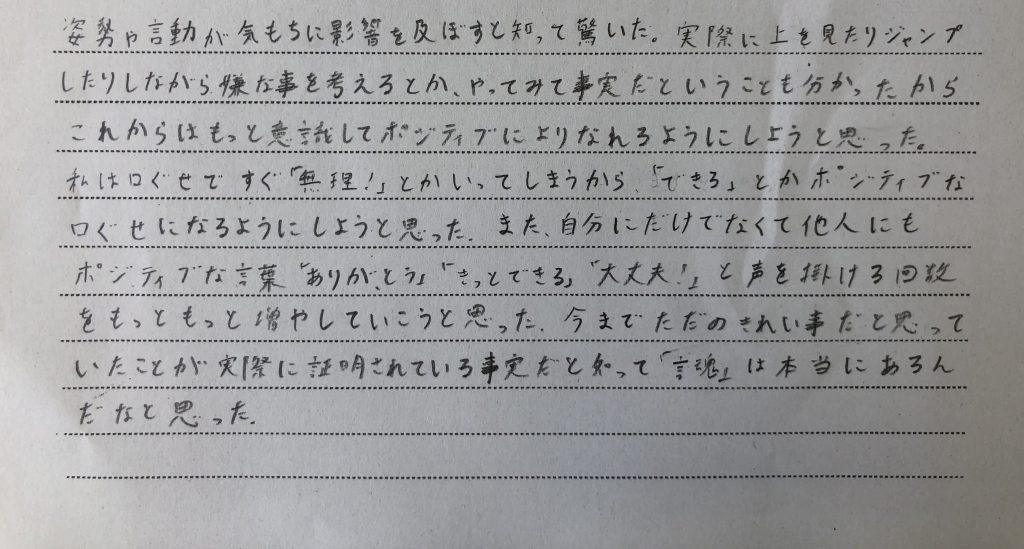 姿勢や言動が気もちに影響を及ぼすと知って驚いた。実際に上を見たりジャンプ
したりしながら嫌な事を考えるとか、やってみて事実だということも分かったから
これからはもっと意識してポジティブによりなれるようにしようと思った。
私は口ぐせですぐ「無理!」とかいってしまうから、「できる」とかポジティブな
口ぐせになるようにしようと思った。また、自分にだけでなくて他人にも
ポジティブな言葉「ありがとう」「きっとできる」「大丈夫!」と声を掛ける回数
をもっともっと増やしていこうと思った。今までただのきれい事だと思って
いたことが実際に証明されている事実だと知って「言魂」は本当にあるん
だなと思った。